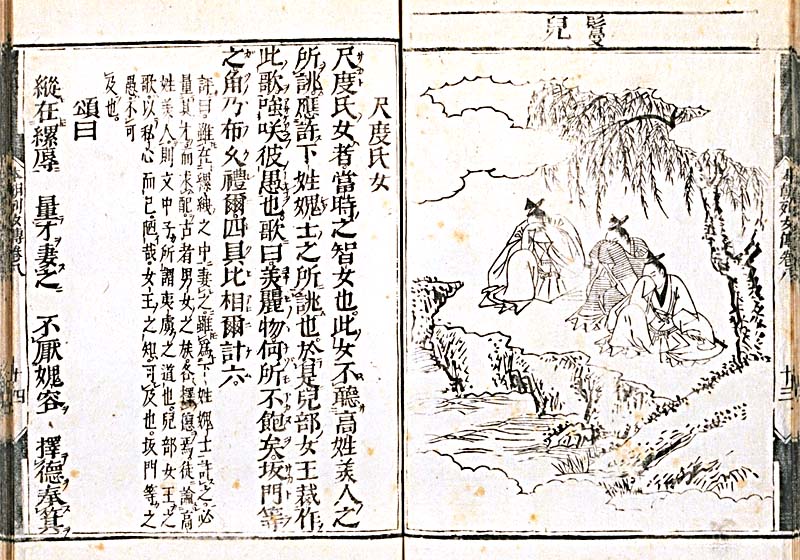 鬘兒
十三
尺度氏女
尺度氏女者當時之智女也。此女不聽高姓美人之
所誂應許下姓媿士之所誂也。於是兒部女王裁作
此歌強咲彼愚也。歌曰美麗物何所不飽矣坂門等
之角乃布久禮爾四具比相爾計六
評曰雖在縲絏之中妻之雖爲下姓媿士許之必
量其才而求配古者男女之族各擇德焉徒論高
姓美人則文中子所謂夷虜之道也。兒部女王之
歌以私心而已。陋哉女王之知可及也。坂門等之
愚不可
及也。
頌曰
縱在縲辱 量才妻之 不厭媿容 擇德奉箕
十四